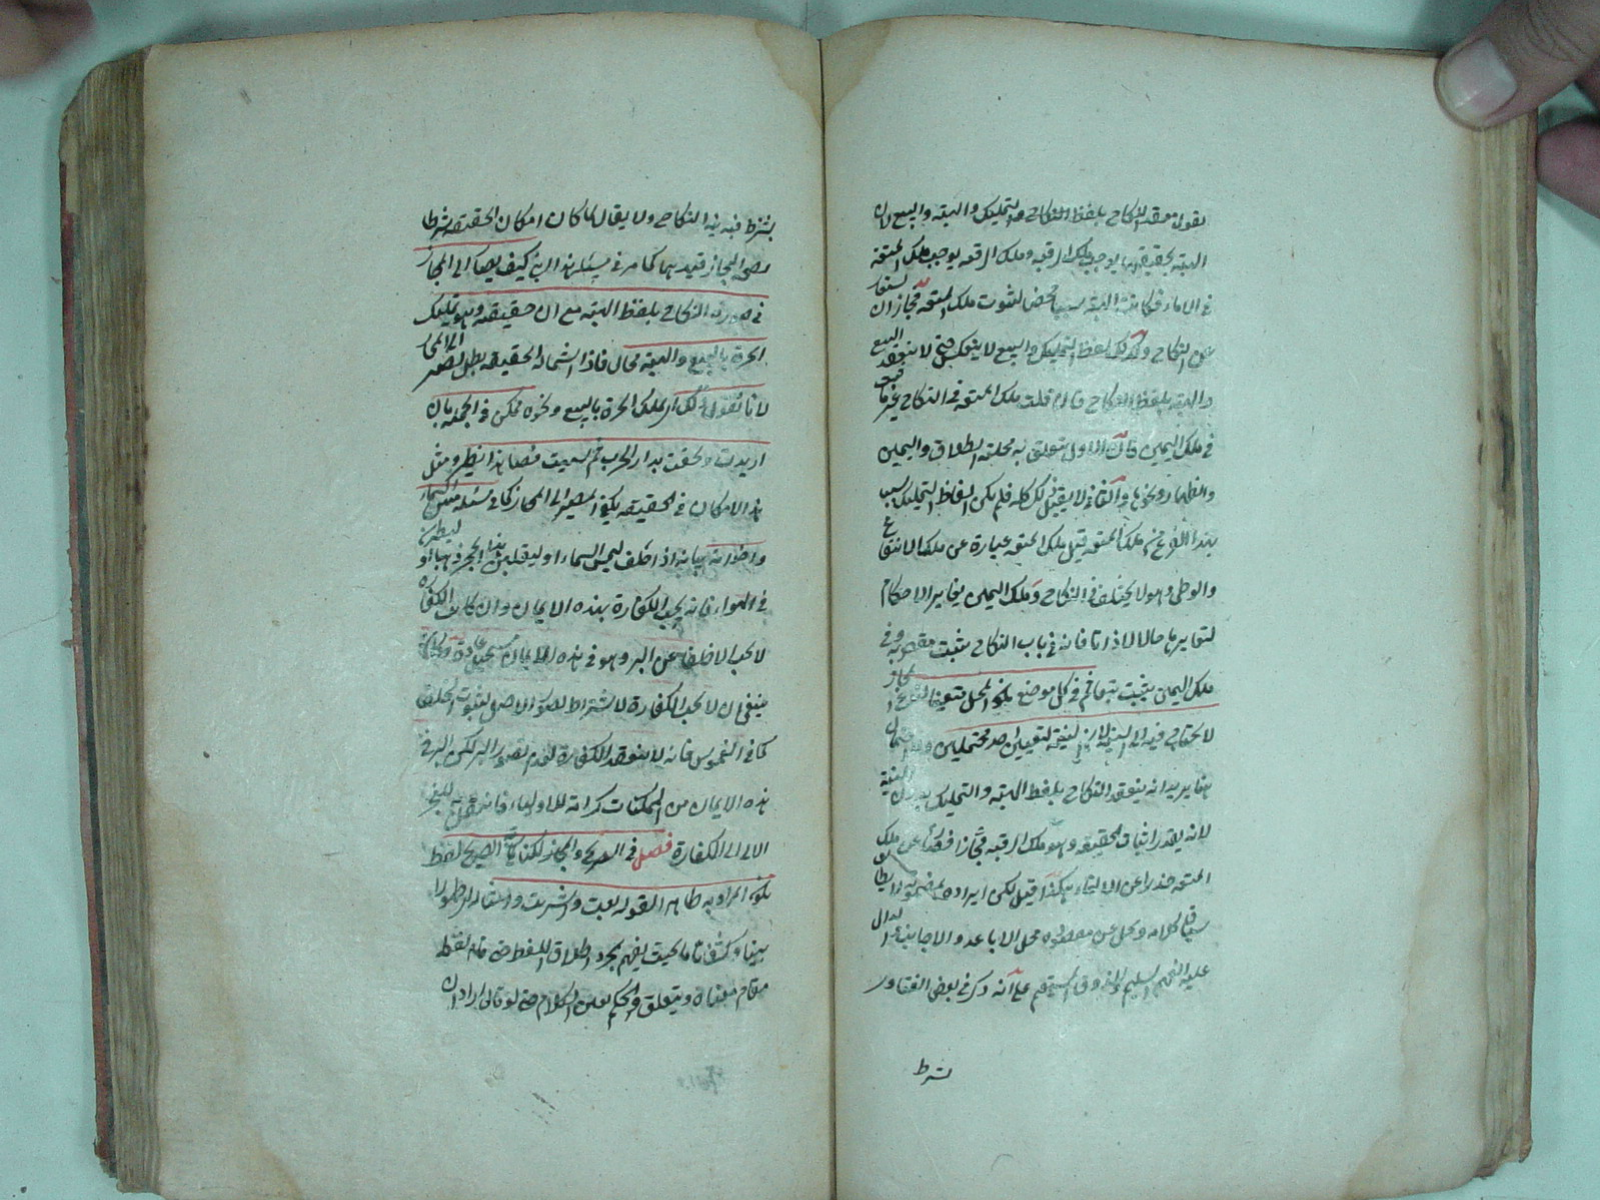 نقول ينعقد النكاح بلفظ النكاح والتمليك والهبة والبيع لان
الهبة بحقيقتها يوجب ملك الرقبة وملك الرقبة يوجب ملك المتعة
في الاماء فكانت الهبة سببا محضا لثبوت ملك المتعة فجاز ان يستعار
عن النكاح وكذلك لفظ التمليك والبيع لا ينعكس حتى لا ينعقد البيع
والهبة بلفظ النكاح فان قلت ملك المتعة في النكاح غير ما ثبت
في ملك اليمين فان الاول يتعلق به محلية الطلاق واليمين
والظهار ونحوها والثاني لا يقبل ذلك كله فلم يكن الفاظ التمليك سببا
لهذا النوع من ملك المتعة قيل ملك المتعة عبارة عن ملك الانتفاع
والوطي وهو لا يختلف في النكاح وملك اليمين يغاير الاحكام
لتغايرهما حالا لا ذاتا فانه في باب النكاح يثبت مقصودا وفي
ملك اليمين يثبت تبعا ثم في كل موضع يكون المحل متعينا للمجاز
لا يحتاج فيه الى النية لان النية لتعيين احد محتملين
هنا يريد انه ينعقد النكاح بلفظ الهبة والتمليك بدون النية
لانه يتعذر اثبات الحقيقة وهو ملك الرقبة مجازا عن ملك
المتعة حذرا عن الالغاء هكذا قيل لكن ايراده
سياق كلامه محل الاباعد والاجانب
عليه الفهم السليم والذوق المستقيم على انه ذكر في بعض الفتاوى
شرط
يشترط فيه نية النكاح ولا يقال لما كان امكان الحقيقة شرطا
لصحة المجاز عندهما كما مر في مسئلة هذا ابني كيف يصار الى المجاز
في صورة النكاح بلفظ الهبة مع ان حقيقته وهو تمليك
الحرة بالبيع والهبة محال فاذا استحال الحقيقة بطل المصير الى المجاز
لانا نقول ذلك اي ملك الحرة بالبيع ونحوه ممكن في الجملة بان
ارتدت ولحقت بدار الحرب ثم سبيت فصار هذا نظير ومثل
هذا الامكان في الحقيقة يكفي للمصير الى المجاز كما في مسئلة مس السماء
واخواته بيانه اذا حلف ليمس السماء او ليقلبن هذا الحجر ذهبا او ليطيرن
في الهواء فانه يجب الكفارة بهذه الايمان وان كانت الكفارة
لا تجب الا خلفا عن البر وهو في هذه الايمان مستحيل عادة
ينبغي ان لا تجب الكفارة لاشتراط تصور الاصل لثبوت الخلف
كما في الغموس فانه لا ينعقد الكفارة لعدم تصور البر لكن البر في
هذه الايمان من الممكنات كرامة للاولياء فانتقل للعجز
الحالي الى الكفارة فصل في الصريح والمجاز والكناية الصريح لفظ
يكون المراد به ظاهرا كقوله بعت واشتريت
بينا وكشفا تاما بحيث يفهم بمجرد اطلاق اللفظ حتى قام لفظه
مقام معناه ويتعلق الحكم بعين الكلام حتى لو قال اراد ان